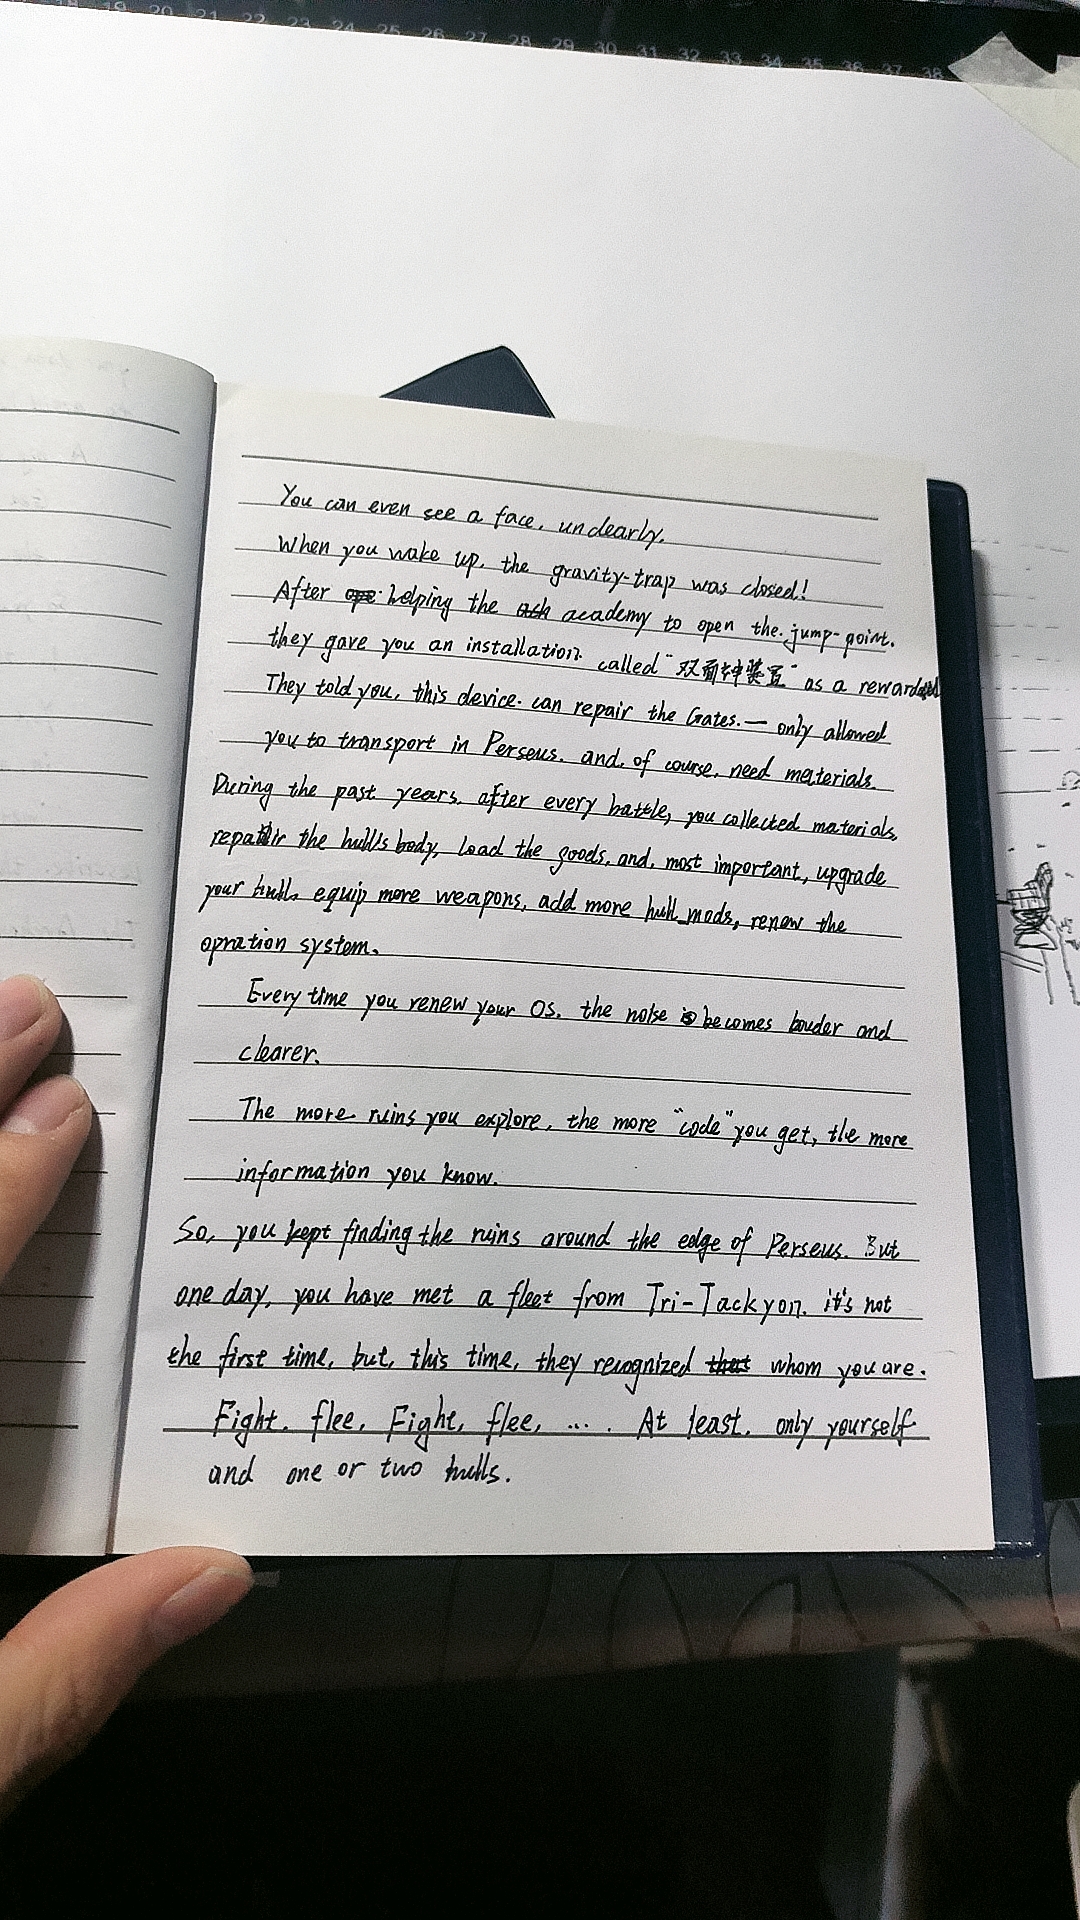 19 20 21 22 23 24 25 26 27 28 29 30 31 32 33 34 35 36 37 38
You can even see a face. unclearly.
When you wake up. the gravity-trap was closed!
After helping the academy to open the jump-point.
they gave you an installation called "双面神装置" as a reward
They told you, this device can repair the Gates. — only allowed
you to transport in Perseus. and, of course, need materials.
During the past years, after every battle, you collected materials,
repair the hulls body, load the goods, and, most important, upgrade
your hull, equip more weapons, add more hull_mods, renew the
opration system.
Every time you renew your OS. the noise becomes louder and
clearer.
The more ruins you explore, the more "code" you get, the more
information you know.
So, you kept finding the ruins around the edge of Perseus. But
one day, you have met a fleet from Tri-Tackyon. it's not
the first time, but, this time, they recognized whom you are.
Fight. flee, Fight, flee, .... At least. only yourself
and one or two hulls.